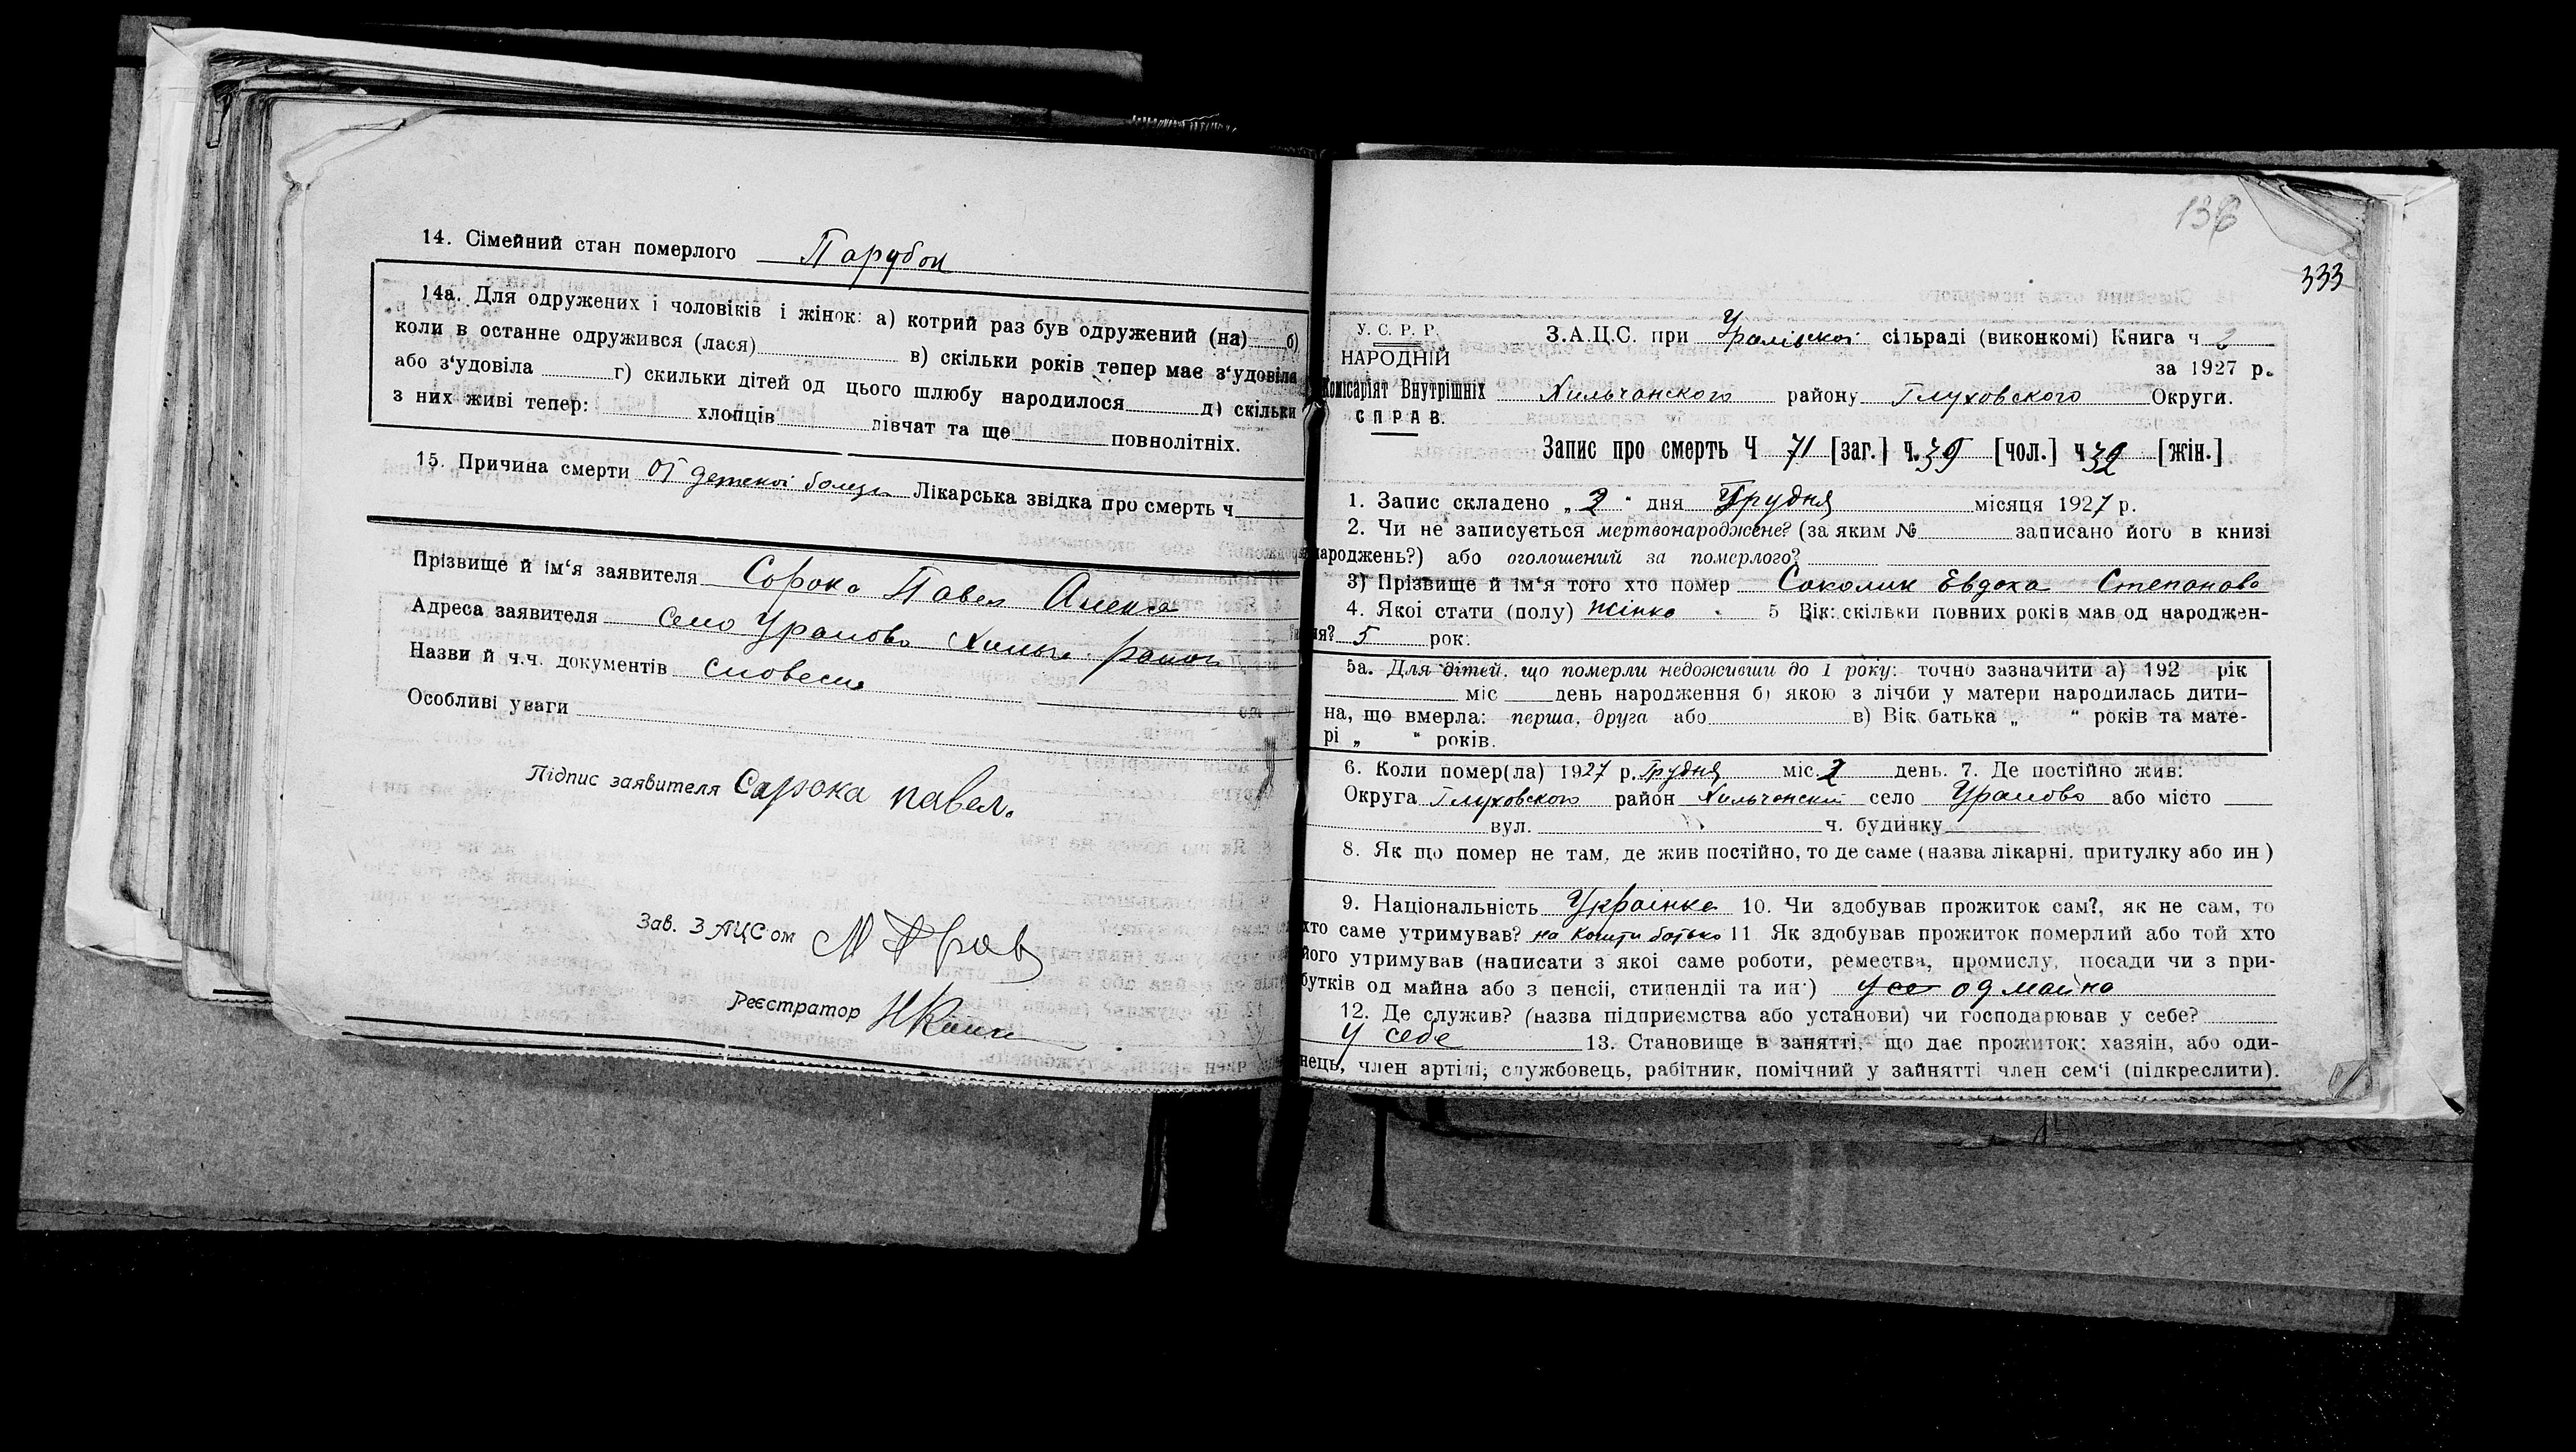 14. Сімейний стан померлого Парубок
14а. Для одружених і чоловіків і жінок: а) котрий раз був одружений (на) б)
коли в останне одружився (лася) в) скільки років тепер має з‘удовіла
або з‘удовіла г) скильки дітей од цього шлюбу народилося д) скільки
з них живі тепер: хлопців дівчат та ще повнолітніх.
15. Причина смерти От детскої Лікарська звідка про смерть ч
Прізвище й ім‘я заявителя Сорока Павел Алекса
Адреса заявителя село Уралово Хильч. район
Назви й ч.ч. документів словесно
Особливі уваги
Підпис заявителя Сарока павел.
Зав. ЗАЦС‘ом
Реєстратор
136
333
У. С. Р. Р.
НАРОДНІЙ
Комісаріят Внутрішніх
СПРАВ.
З.А.Ц.С. при Уралівскої сільраді (виконкомі) Книга ч 2
за 1927 р.
Хильчанского району Глуховского Округи.
Запис про смерть Ч 71 [заг.] ч. 39 [чол.] ч 32 [жін.]
1. Запис складено „ 2 “ дня Грудня місяця 1927 р.
2. Чи не записується мертвонароджене? (за яким № записано його в книзі
народжень?) або оголошений за померлого?
3) Прізвище й ім‘я того хто помер Соколик Евдоха Степанова
4. Якої стати (полу) жінка 5 Вік: скільки повних років мав од народжен-
ня? 5 рок.
5а. Для дітей, що померли недоживши до 1 року: точно зазначити а) 192 рік
міс день народження б) якою з лічби у матери народилась дити-
на, що вмерла: перша, друга або в) Вік батька „ “ років та мате-
рі „ “ років.
6. Коли помер(ла) 1927 р. Грудня міс. 2 день. 7. Де постійно жив:
Округа Глуховского район Хильчанский село Уралово або місто
вул. ч. будинку
8. Як що помер не там, де жив постійно, то де саме (назва лікарні, притулку або ин)
9. Національність Українка 10. Чи здобував прожиток сам?, як не сам, то
хто саме утримував? на кошти батько 11 Як здобував прожиток померлий або той хто
його утримував (написати з якої саме роботи, ремества, промислу, посади чи з при-
бутків од майна або з пенсії, стипендії та ин.) од майна
12. Де служив? (назва підприємства або установи) чи господарював у себе?
у себе 13. Становище в занятті, що дає прожиток: хазяін, або оди-
нець, член артілі, службовець, рабітник, помічний у зайнятті член сем‘ї (підкреслити).